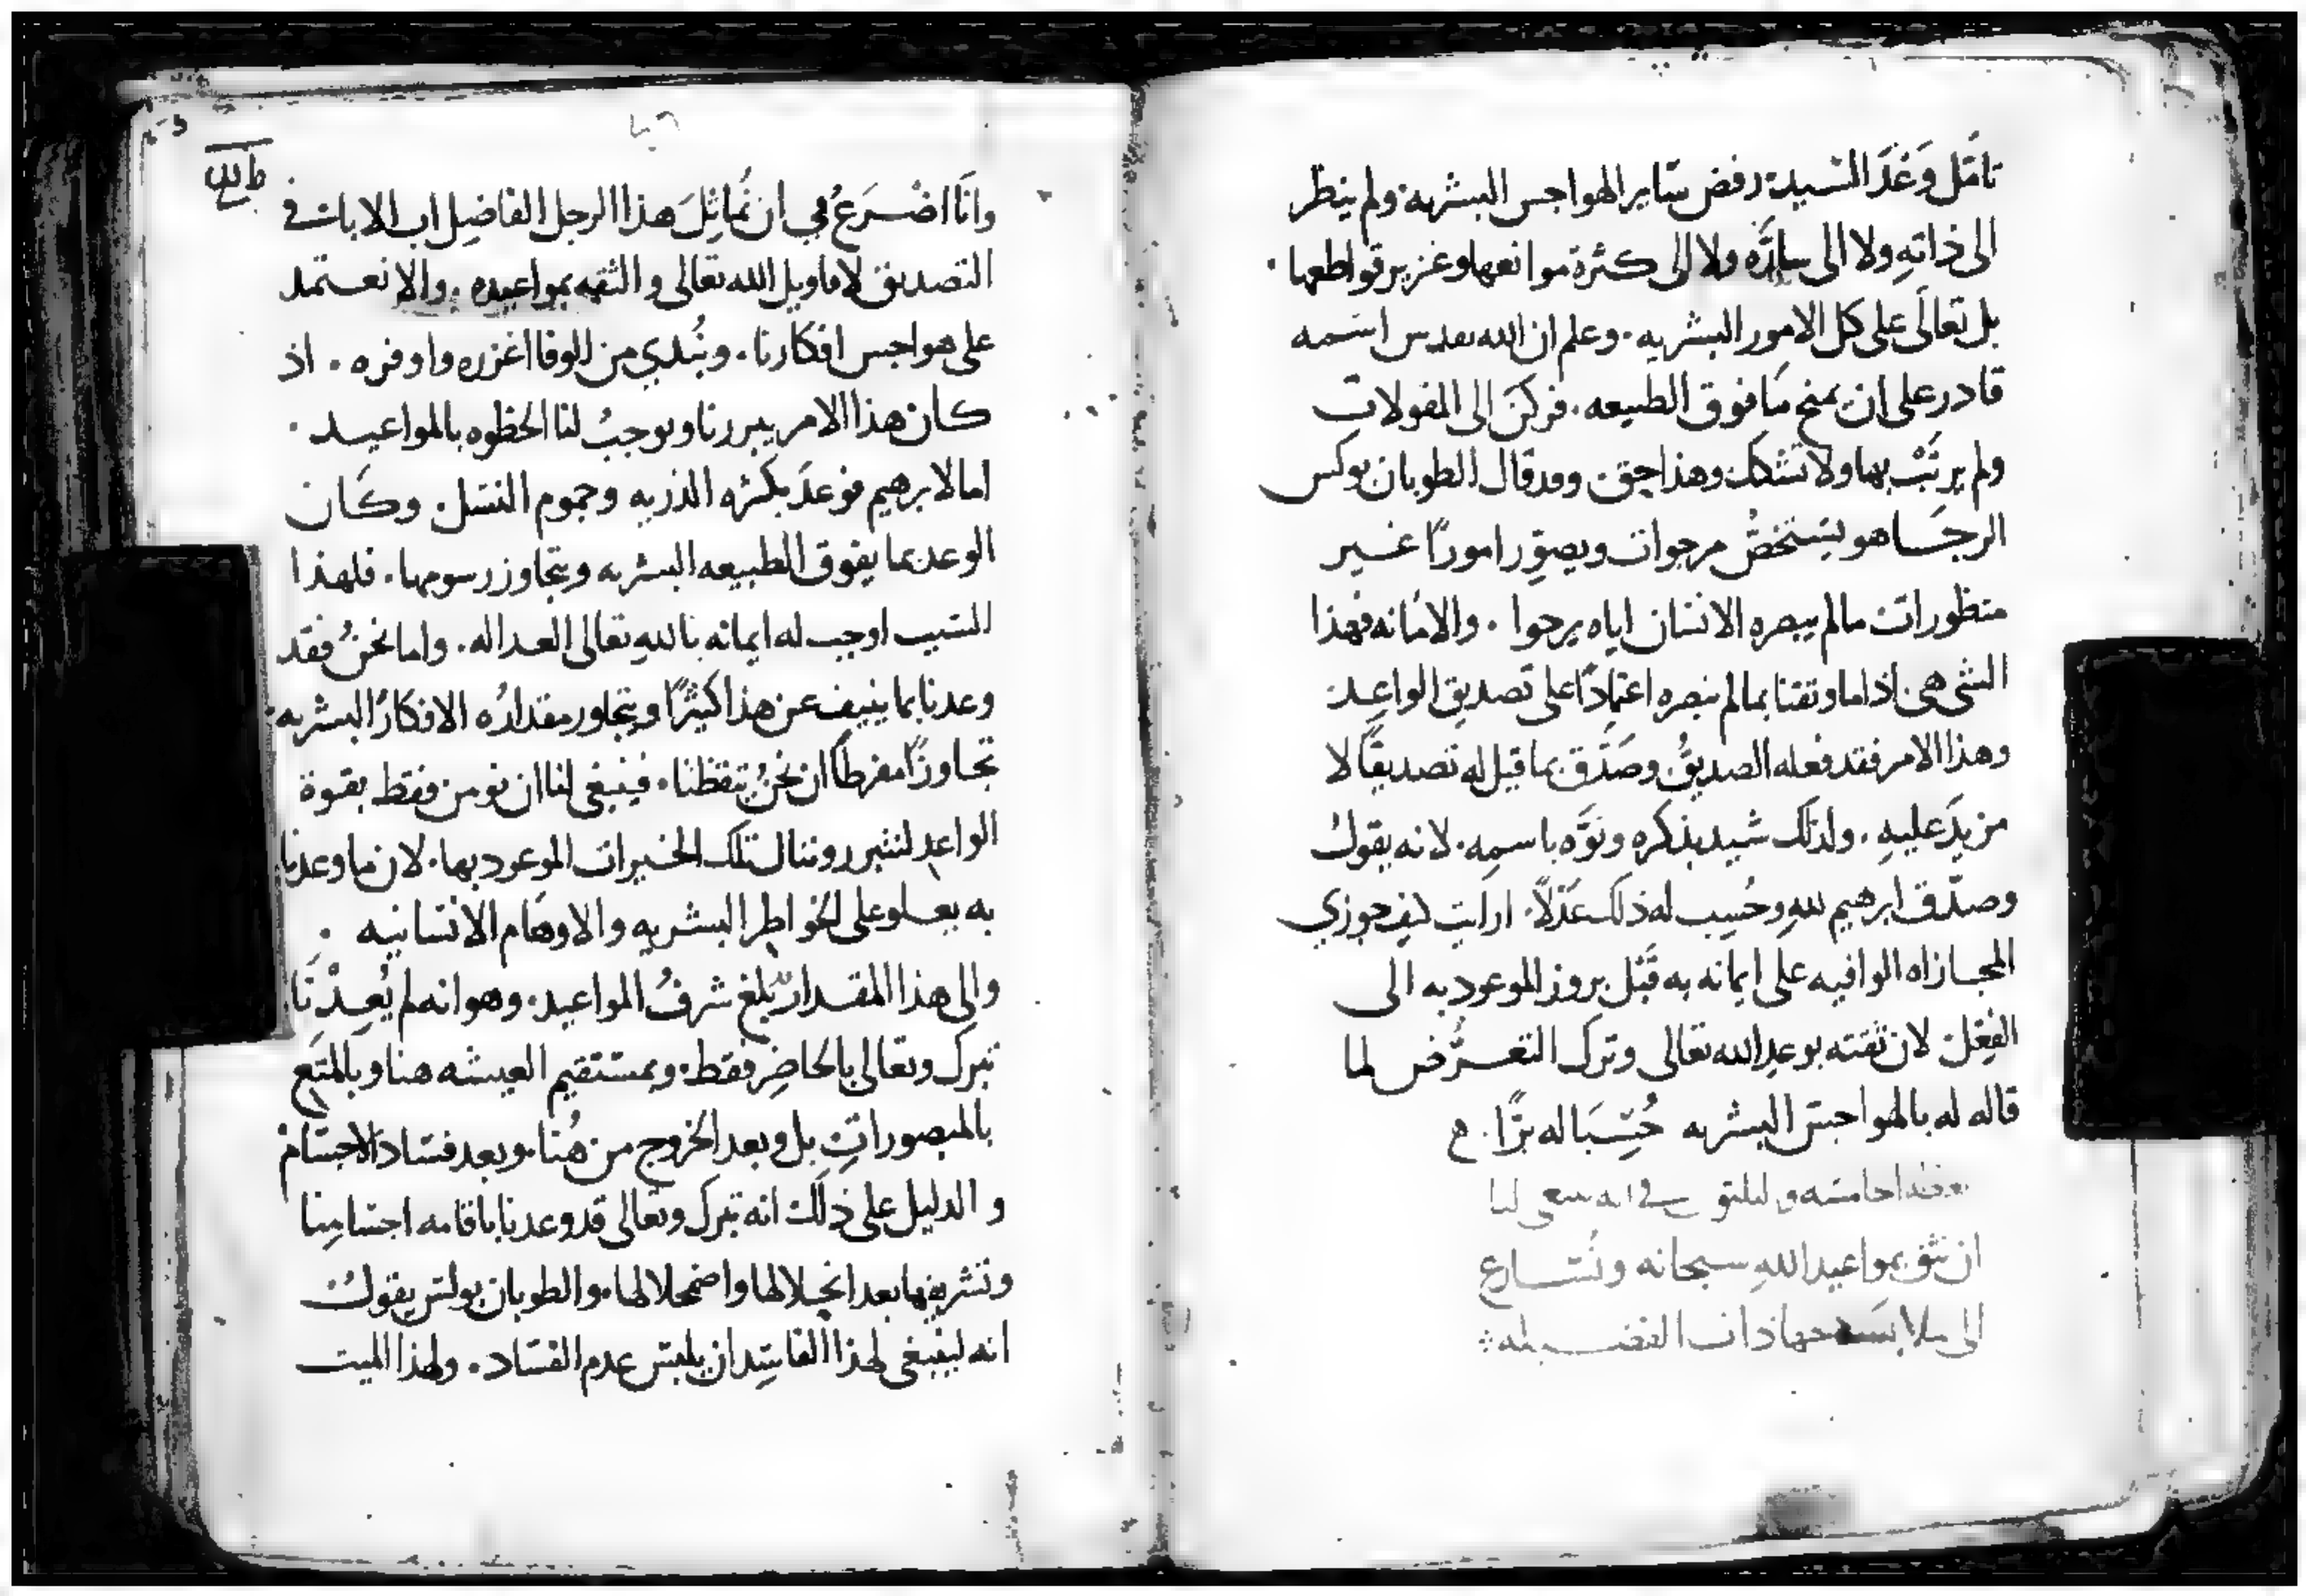 تامَل وَعْدَ السيد رفض ساير الهواجس البشريه ولم ينظر
الى ذاتهِ ولا الى سارَّه ولا الى كثرة موانعها وغزير قواطعها.
بل تعالَى على كل الامور البشريه. وعلم ان الله تقدس اسمه
قادر على ان يمنح مَا فوق الطبيعه. فركَنَ الى المقولات
ولم يرتَبْ بها ولا تشكك وهذا حق وقد قال الطوبان بولس
الرجَسا هو يستخصُ مرجوات ويصوِّر امورًا غير
منظورات ما لم يبصره الانسان اياه يرجوا . والامانه فهذا
الشى هى اذا ما وثقنا بما لم نبصره اعتمادًا على تصديق الواعد
وهذا الامر فقد فعله الصديقُ وصَدَّق بما قيل له تصديقًا لا
مزيدَ عليهِ . ولذلك شيد بذكرهِ ونَوَّه باسمِه. لانه يقول
وصدّق ابرهيم للهِ وحُسِب له ذلك عَدْلاً. ارايت كيف جوزي
المجازاه الوافيه على ايمانه به قَبْل بروز الموعود به الى
الفِعْل لان ثقته بوعدِ الله تعالى وترك التعرُّض لما
قاله له بالهواجس البشريه حُسِبَا له برًا.
ان نثق بمواعيد اللهِ سبحانه ونُسارع
الى
ذات الفضيله
وانَا اضْرَعُ في ان نُماثِلَ هذا الرجل الفاضِل اب الابات في
التصديق لاقاويل الله تعالى والثقه بمواعيده . والا نعتمد
على هواجس افكارنا. ونُبْدي من الوفا اغزره واوفره . اذ
كان هذا الامر يبررنا ويوجبُ لنا الحظوه بالمواعيد.
اما لابرهيم فوعدَ بكثره الذريه وجموم النسل. وكَان
الوعد بما يفوق الطبيعه البشريه ويتجاوز رسومها. فلهذا
السبب اوجب له ايمانه باللهِ تعالى العداله. واما نحنُ فقد
وعدنا بما ينيف عن هذا كثيرًا ويتجاوز مقدارُه الافكارَ البشريه
تجاوزًا مفرطًا ان نحنُ تيقظنا. فينبغى لنا ان نومن فقط بقوة
الواعد لنتبرر وننال تلك الخيرات الموعود بها. لان ما وعدنا
به يعلو على الخواطر البشريه والاوهَام الانسانيه .
والى هذا المقدار بلغ شرفُ المواعيد. وهو انه لم يُعِدْنَا
تبرك وتعالى بالحاضِر فقط. وبمستقيم العيشه هنا وبالمتع
بالمبصوراتِ بل وبعد الخروج من هُنا. وبعد فساد الاجسام
والدليل على ذلك انه تبرك وتعالى قد وعدنا باقامه اجسامِنا
وتشريفها بعد انحلالها واضمحلالها. والطوبان بولس يقول
انه لينبغى لهذا الفاسِد ان يلبس عدم الفساد. ولهذا الميت